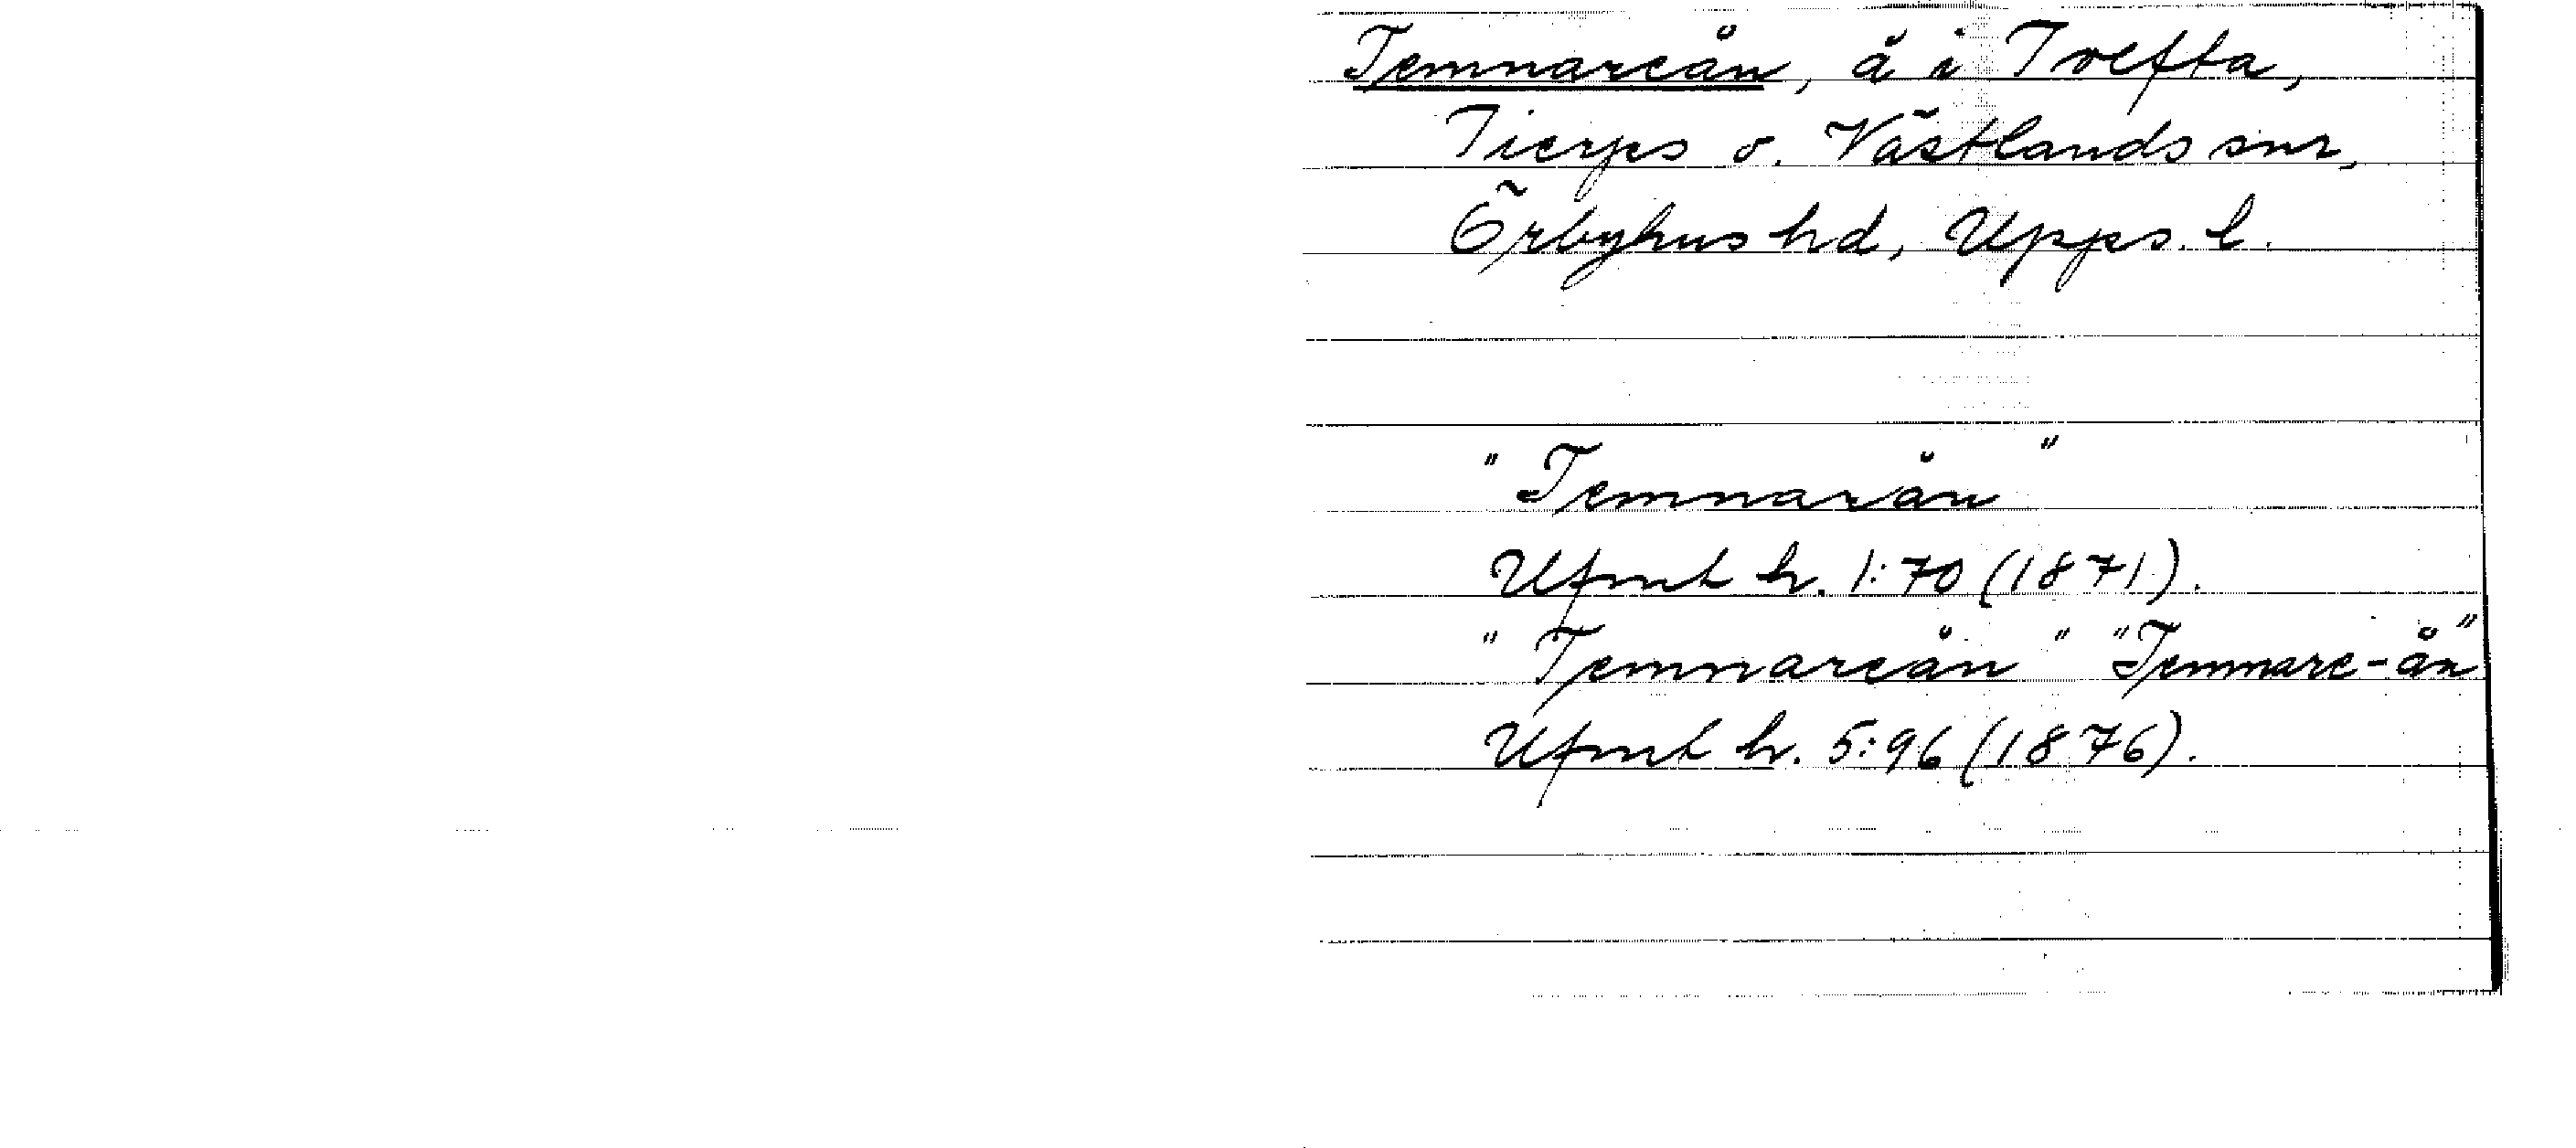 Temnareån, å i Tolfta,
Tierps o. Västlands snr,
Örbyhus hd, Upps. l.
"Temnarån"
Ufmt h. 1:70 (1871).
"Temnareån" "Temnare-ån"
Ufmt h. 5:96 (1876).